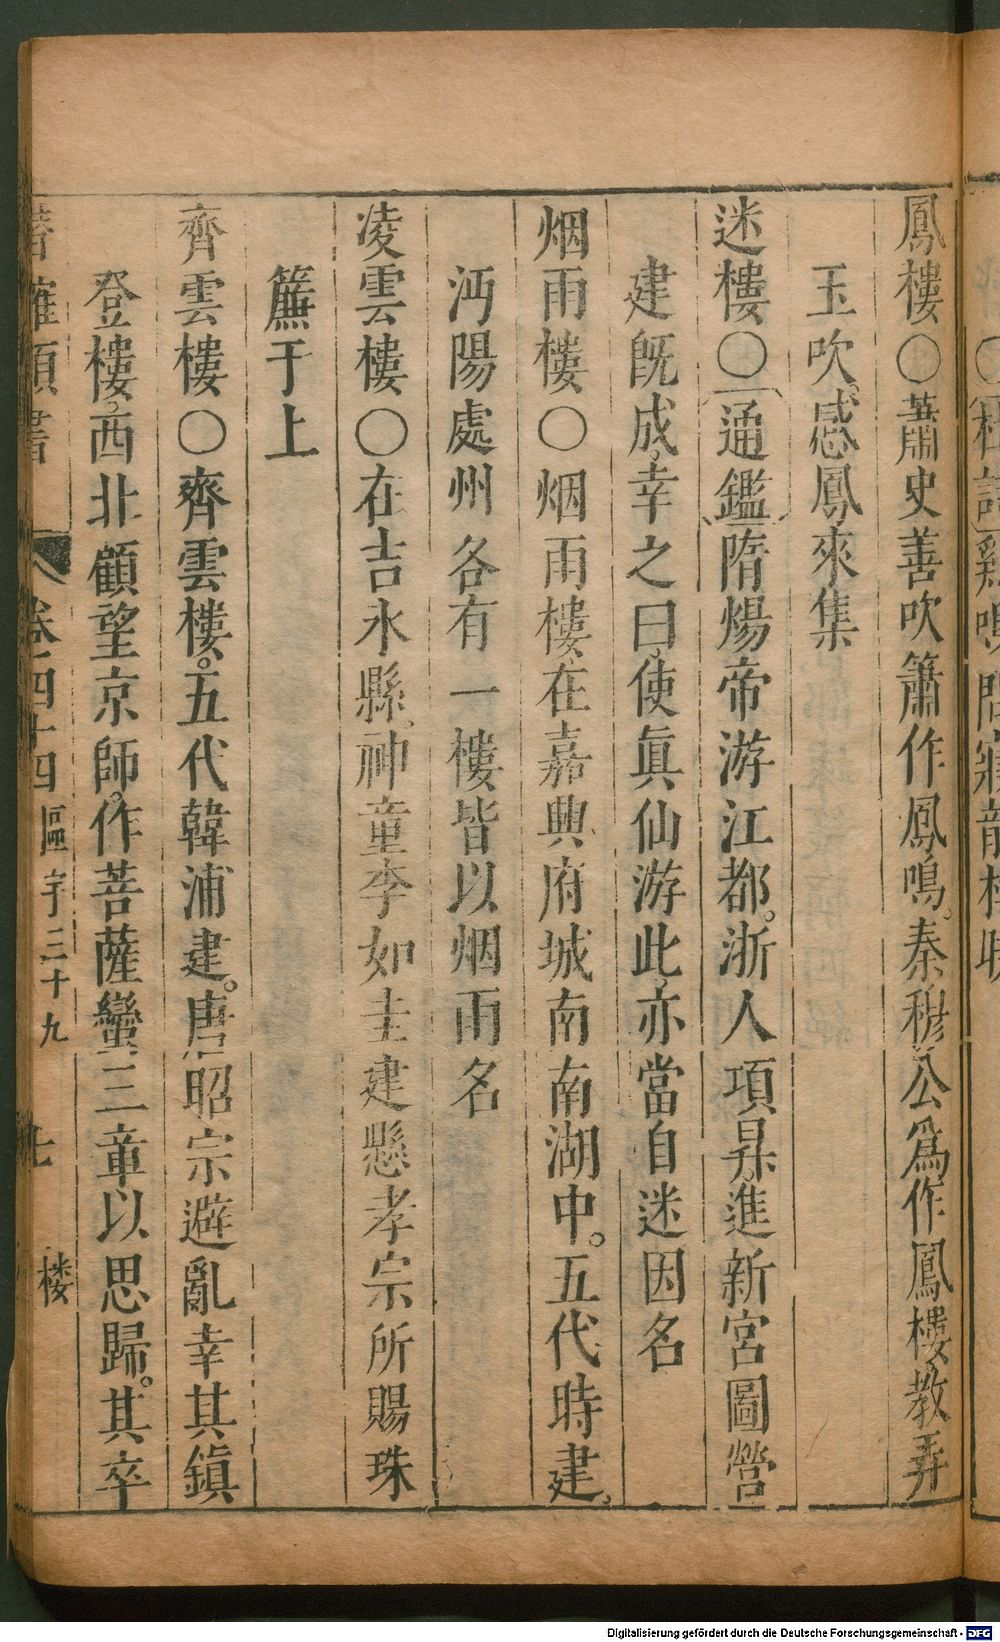 鳳樓〇蕭史善吹簫作鳳鳴。秦穆公爲作鳳樓、教弄
玉吹。感鳳來集
迷樓〇通鑑隋煬帝游江都。浙人項昇進新宮圖營
建旣成、幸之曰、使眞仙游此、亦當自迷因名
烟雨樓〇烟雨樓、在嘉興府城南南湖中。五代時建。
沔陽處州各有一樓皆以烟雨名
凌雲樓〇在吉水縣、神童李如圭建懸孝宗所賜珠
簾于上
齊雲樓〇齊雲樓。五代韓浦建。唐昭宗避亂幸其鎭
登樓、西北顧望京師、作菩薩蠻三章以思歸。其卒
類書 卷四十四 區宇三十九 七 楼
Digitalisierung gefördert durch die Deutsche Forschungsgemeinschaft - DFG